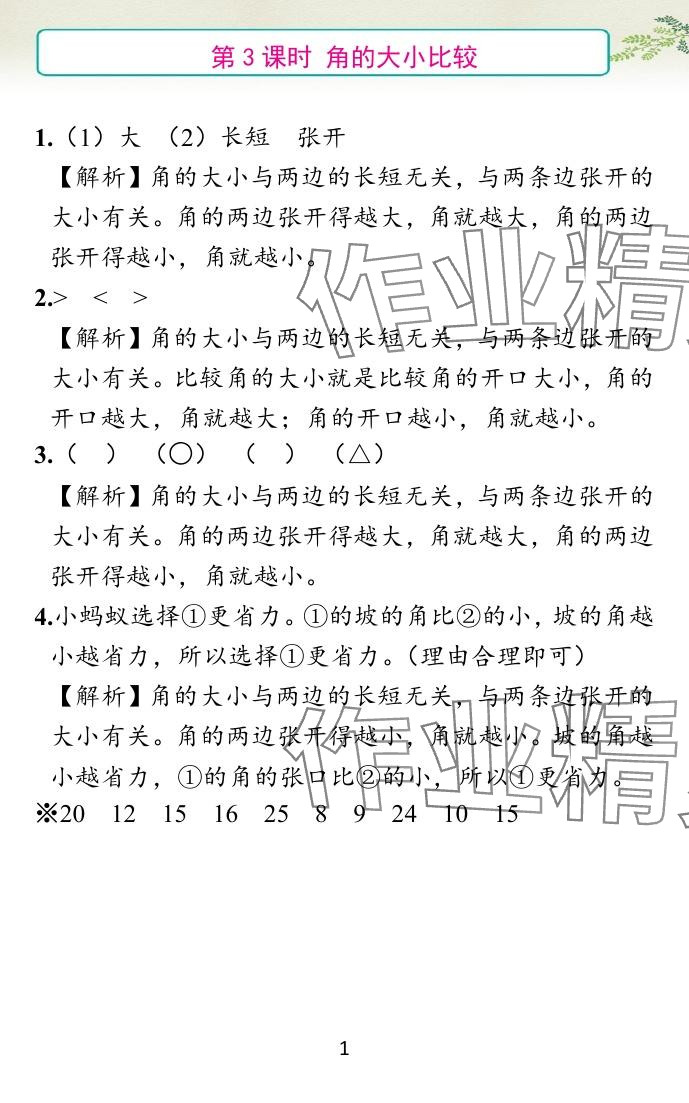 第 3 课时 角的大小比较
1.（1）大 （2）长短 张开
【解析】角的大小与两边的长短无关，与两条边张开的
大小有关。角的两边张开得越大，角就越大，角的两边
张开得越小，角就越小。
作业精
2.> < >
【解析】角的大小与两边的长短无关，与两条边张开的
大小有关。比较角的大小就是比较角的开口大小，角的
开口越大，角就越大；角的开口越小，角就越小。
3.（ ） （○） （ ） （△）
【解析】角的大小与两边的长短无关，与两条边张开的
大小有关。角的两边张开得越大，角就越大，角的两边
张开得越小，角就越小。
4.小蚂蚁选择①更省力。①的坡的角比②的小，坡的角越
小越省力，所以选择①更省力。（理由合理即可）
【解析】角的大小与两边的长短无关，与两条边张开的
大小有关。角的两边张开得越小，角就越小。坡的角越
小越省力，①的角的张口比②的小，所以①更省力。
作业精
※20 12 15 16 25 8 9 24 10 15
1